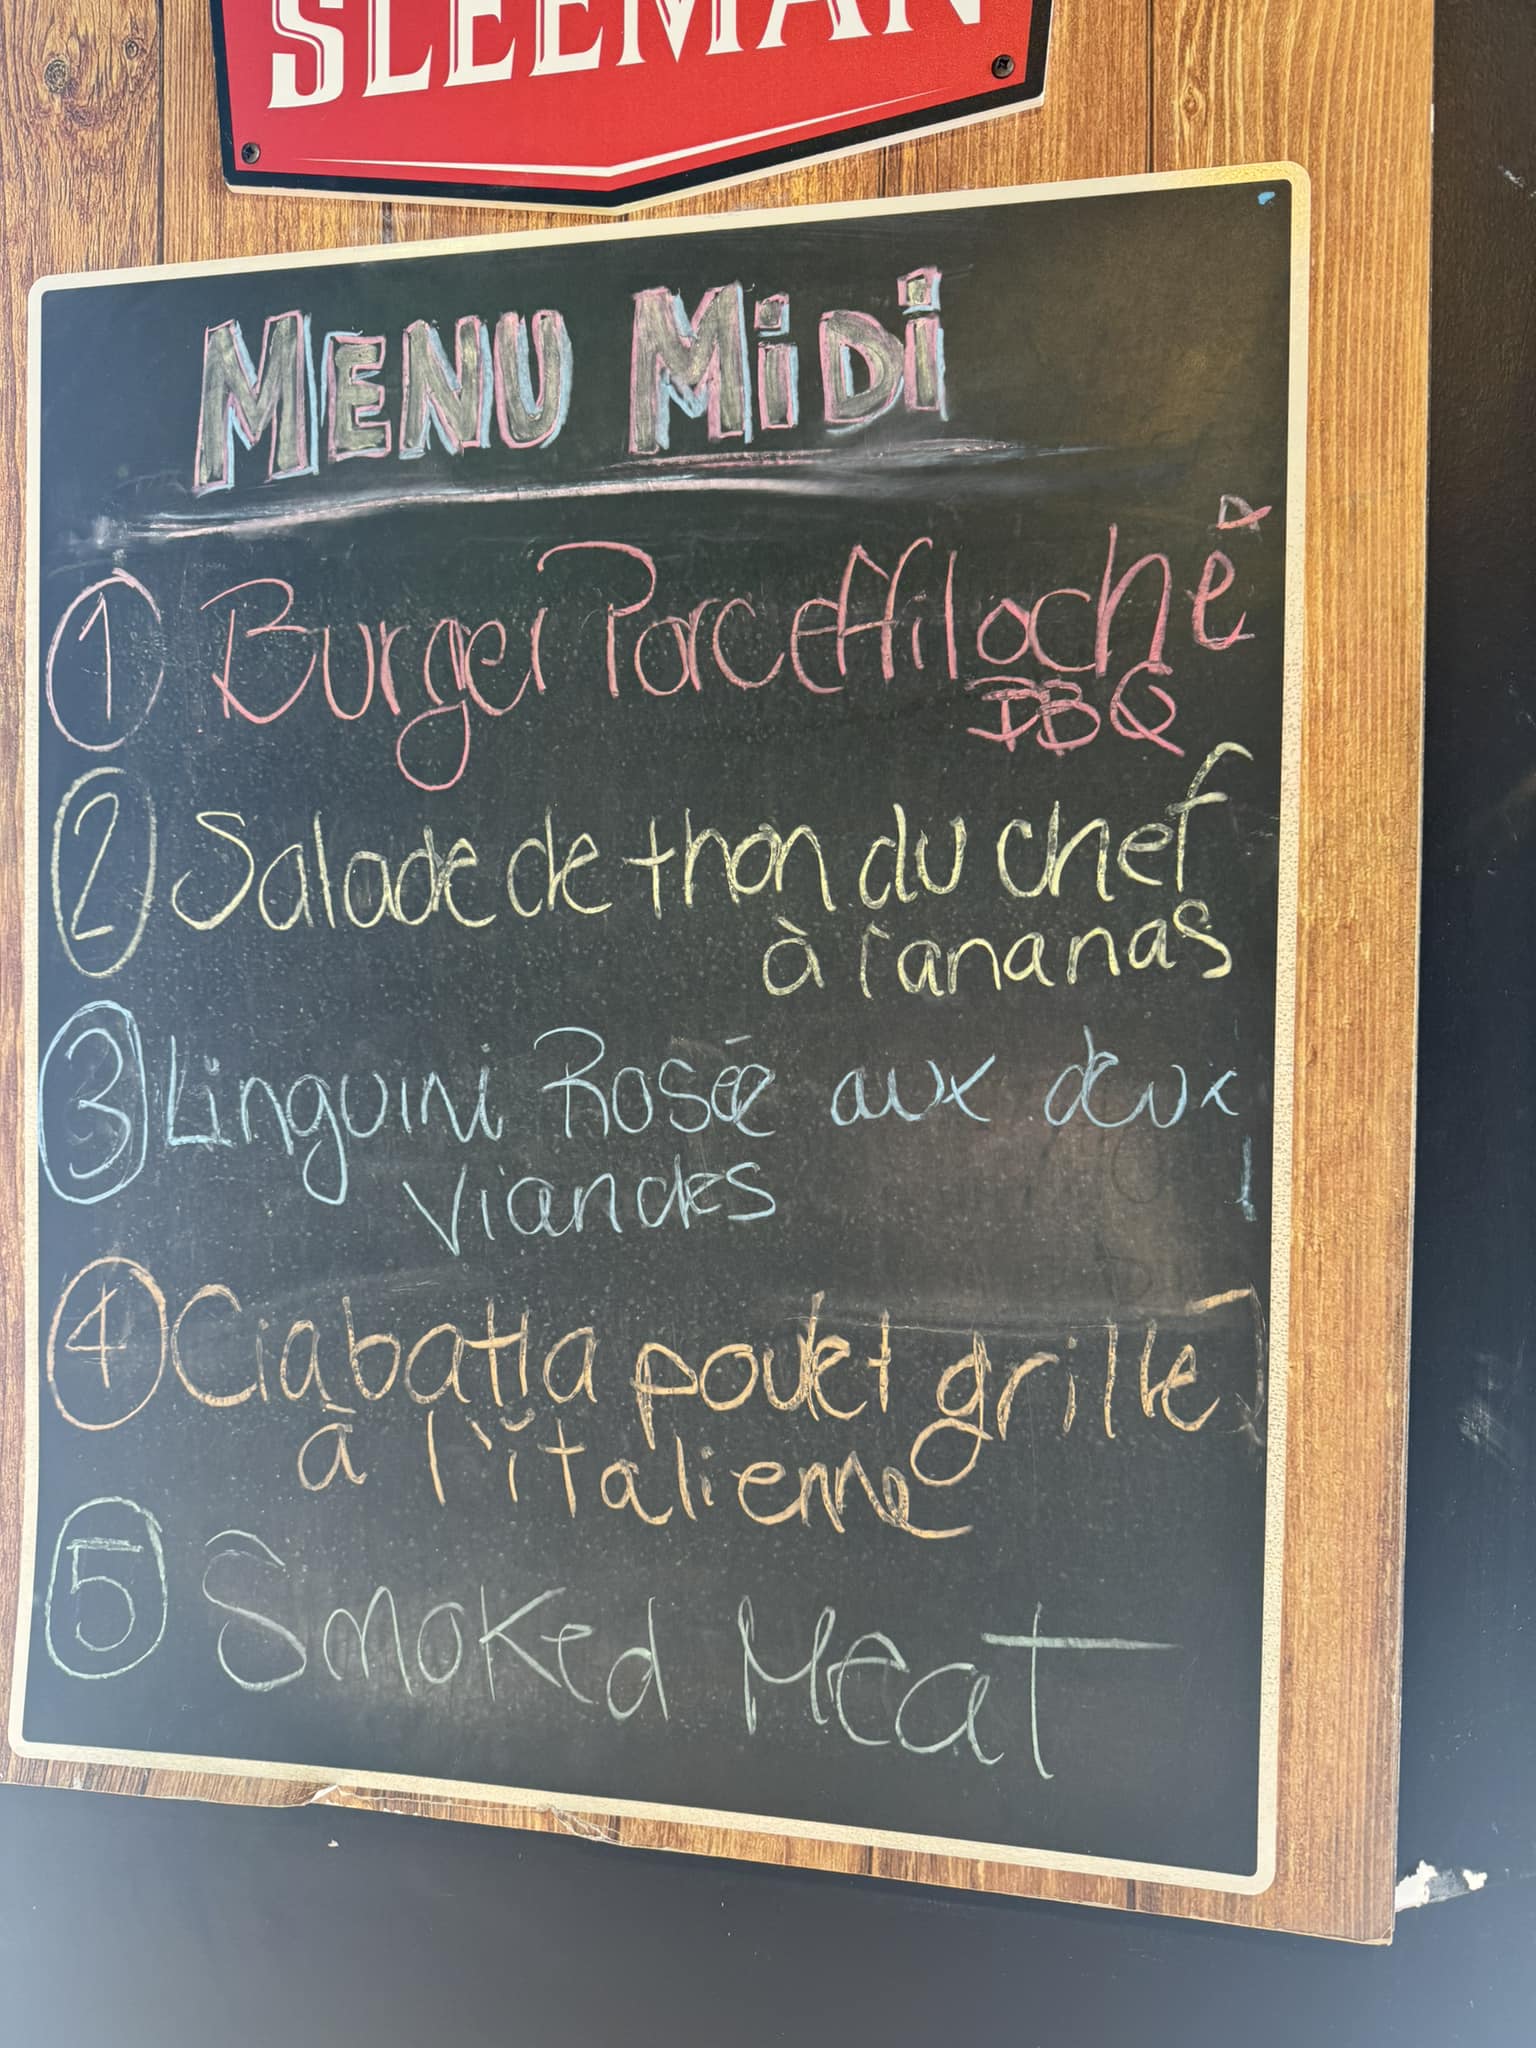 SLEEMAN
MENU MiDi
1 Burger Porc effiloché
BBQ
2 Salade de thon du chef
à l'ananas
3 Linguini Rosée aux deux
viandes
4 Ciabatta poulet grillé
à l'italienne
5 Smoked Meat